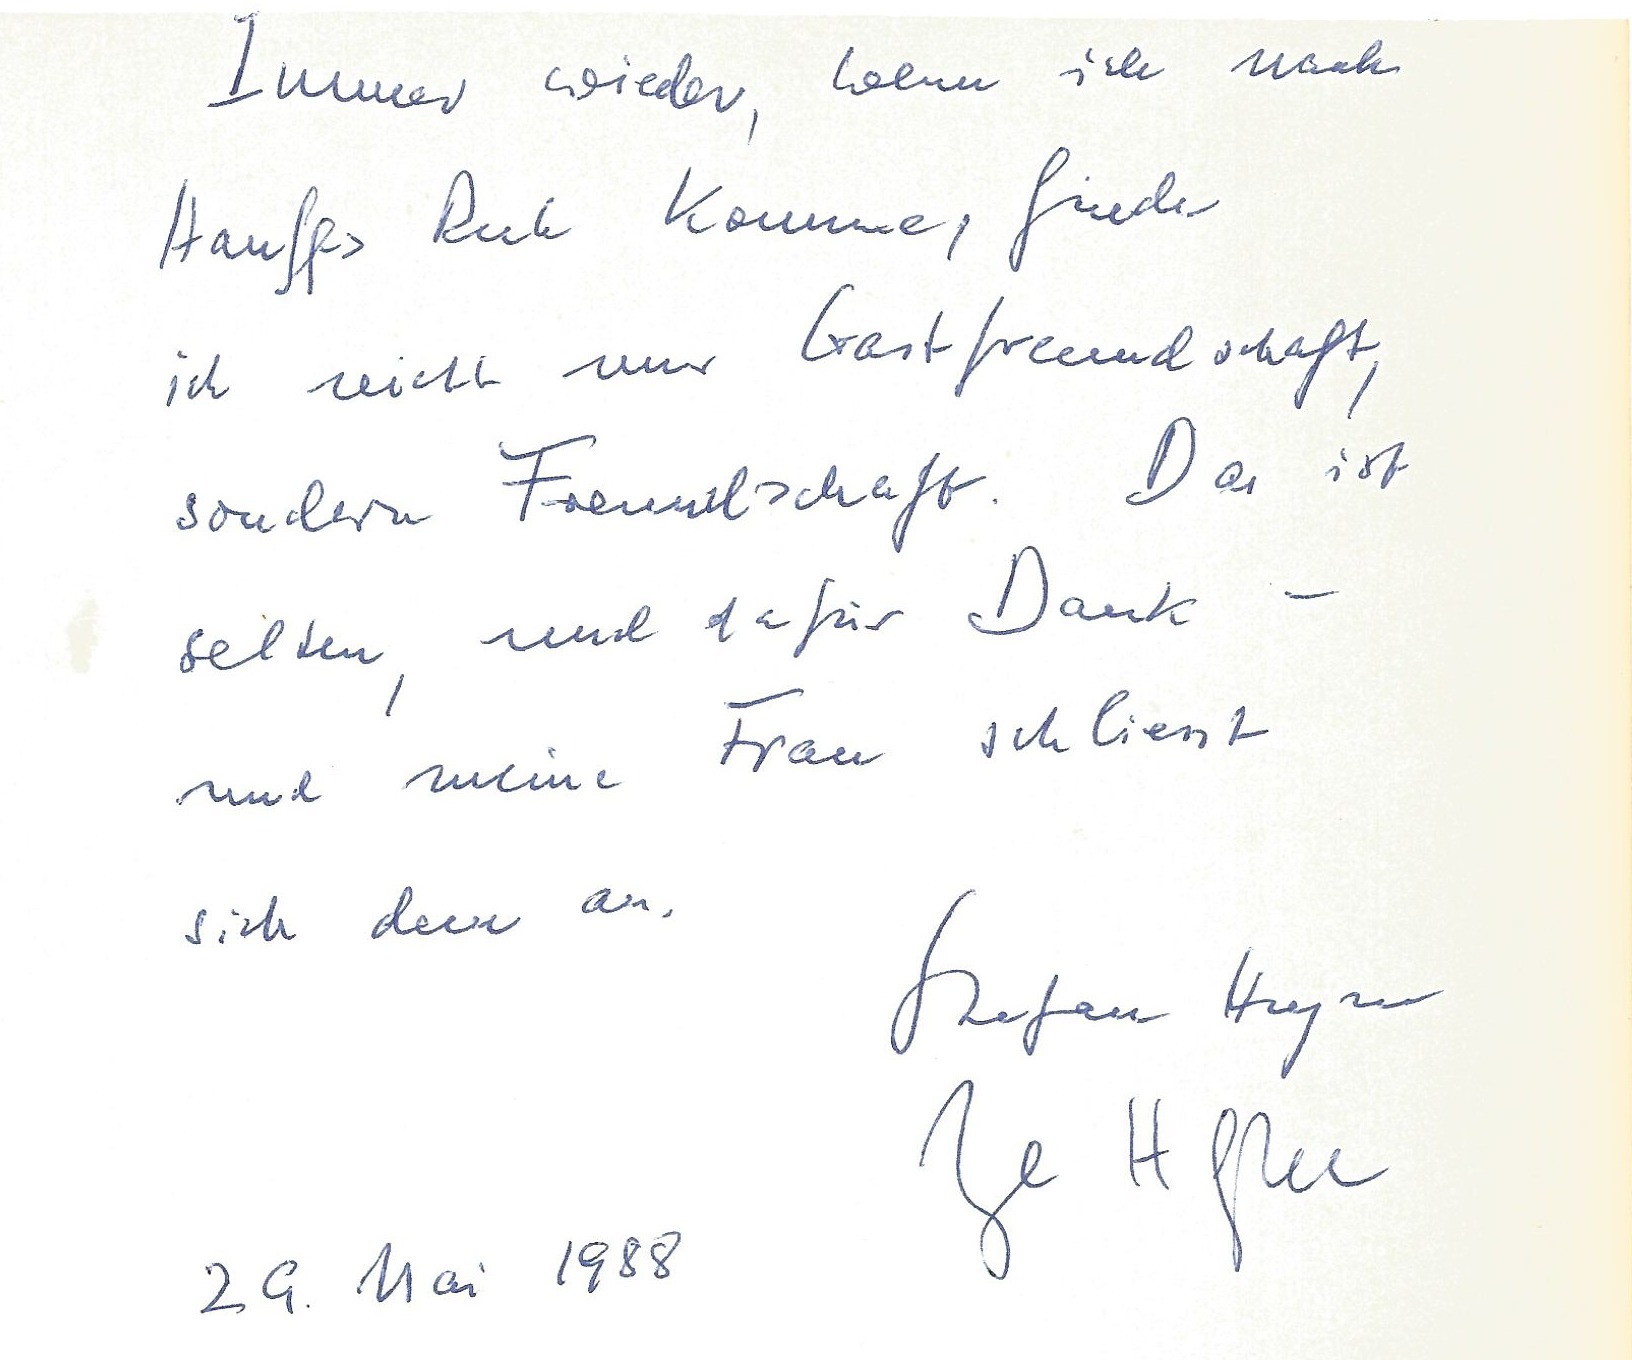 Immer wieder, wenn ich nach
Hauffs Ruh komme, finde
ich nicht nur Gastfreundschaft,
sondern Freundschaft. Das ist
selten, und dafür Dank –
und meine Frau schliesst
sich dem an.
Stefan Heym
Inge Heym
29. Mai 1988